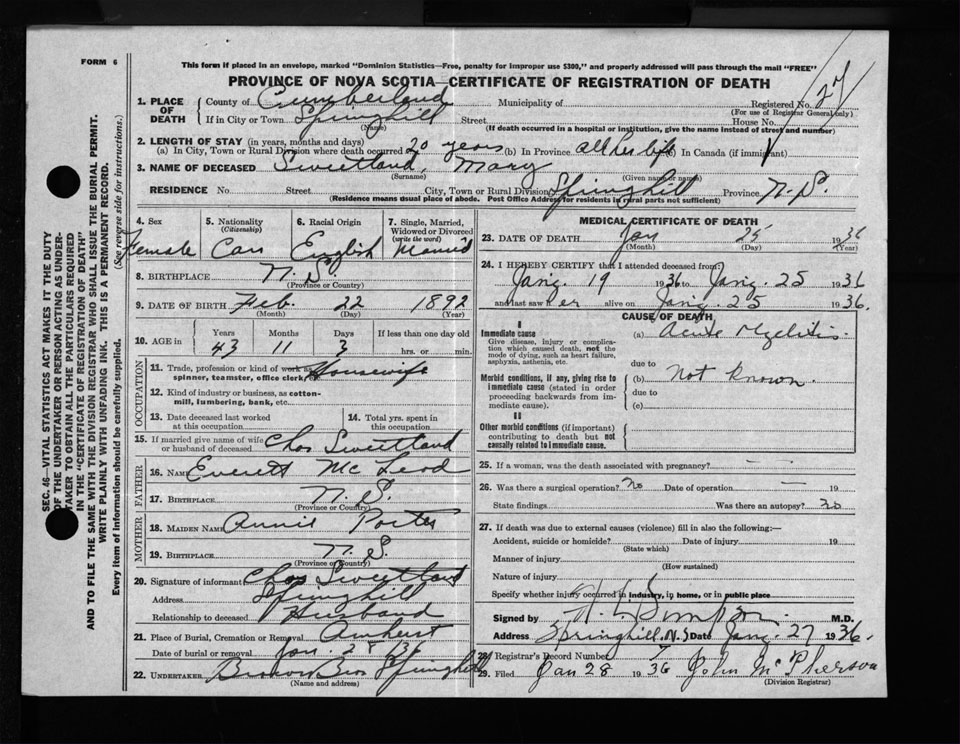 FORM 6
This form if placed in an envelope, marked "Dominion Statistics—Free, penalty for improper use $300," and properly addressed will pass through the mail "FREE"
PROVINCE OF NOVA SCOTIA—CERTIFICATE OF REGISTRATION OF DEATH
1. PLACE OF DEATH County of Cumberland Municipality of Registered No. 27
(For use of Registrar General only)
If in City or Town Springhill Street House No.
(Name) (If death occurred in a hospital or institution, give the name instead of street and number)
2. LENGTH OF STAY (in years, months and days)
(a) In City, Town or Rural Division where death occurred 20 years (b) In Province all her life (c) In Canada (if immigrant)
3. NAME OF DECEASED Sweetland, Mary
(Surname) (Given name or names)
RESIDENCE No. Street City, Town or Rural Division Springhill Province N.S.
(Residence means usual place of abode. Post Office Address for residents in rural parts not sufficient)
4. Sex 5. Nationality (Citizenship) 6. Racial Origin 7. Single, Married, Widowed or Divorced (write the word)
Female Can English Married
8. BIRTHPLACE N.S.
(Province or Country)
9. DATE OF BIRTH Feb. 22 1892
(Month) (Day) (Year)
10. AGE in Years Months Days If less than one day old
43 11 3 hrs. or min.
OCCUPATION
11. Trade, profession or kind of work as spinner, teamster, office clerk, etc. Housewife
12. Kind of industry or business, as cotton-mill, lumbering, bank, etc.
13. Date deceased last worked at this occupation
14. Total yrs. spent in this occupation
15. If married give name of wife or husband of deceased Chas Sweetland
FATHER
16. NAME Everett McLeod
17. BIRTHPLACE N.S.
(Province or Country)
MOTHER
18. MAIDEN NAME Annie Porter
19. BIRTHPLACE N.S.
(Province or Country)
20. Signature of informant Chas Sweetland
Address Springhill
Relationship to deceased Husband
21. Place of Burial, Cremation or Removal Amherst
Date of burial or removal Jan. 28/36
22. UNDERTAKER Bros Springhill
(Name and address)
MEDICAL CERTIFICATE OF DEATH
23. DATE OF DEATH Jan 25 1936
(Month) (Day) (Year)
24. I HEREBY CERTIFY that I attended deceased from
Jan'y. 19 1936 to Jan'y. 25 1936
and last saw her alive on Jan'y. 25 1936.
CAUSE OF DEATH
I
Immediate cause (a) Acute Myelitis.
Give disease, injury or complication which caused death, not the mode of dying, such as heart failure, asphyxia, asthenia, etc.
due to
Morbid conditions, if any, giving rise to immediate cause (stated in order proceeding backwards from immediate cause). (b) Not Known.
due to
(c)
II
Other morbid conditions (if important) contributing to death but not causally related to immediate cause.
25. If a woman, was the death associated with pregnancy? —
26. Was there a surgical operation? No Date of operation — 19
State findings Was there an autopsy? no
27. If death was due to external causes (violence) fill in also the following:—
Accident, suicide or homicide? Date of injury 19
(State which)
Manner of injury
(How sustained)
Nature of injury
Specify whether injury occurred in industry, in home, or in public place
Signed by M.D.
Address Springhill, N.S. Date Jan'y. 27 1936.
28. Registrar's Record Number 7
29. Filed Jan 28 1936 John McPherson
(Division Registrar)
SEC. 46—VITAL STATISTICS ACT MAKES IT THE DUTY
OF THE UNDERTAKER OR PERSON ACTING AS UNDER-
TAKER TO OBTAIN ALL THE PARTICULARS REQUIRED
IN THE "CERTIFICATE OF REGISTRATION OF DEATH"
AND TO FILE THE SAME WITH THE DIVISION REGISTRAR WHO SHALL ISSUE THE BURIAL PERMIT.
WRITE PLAINLY WITH UNFADING INK. THIS IS A PERMANENT RECORD.
Every item of information should be carefully supplied. (See reverse side for instructions.)